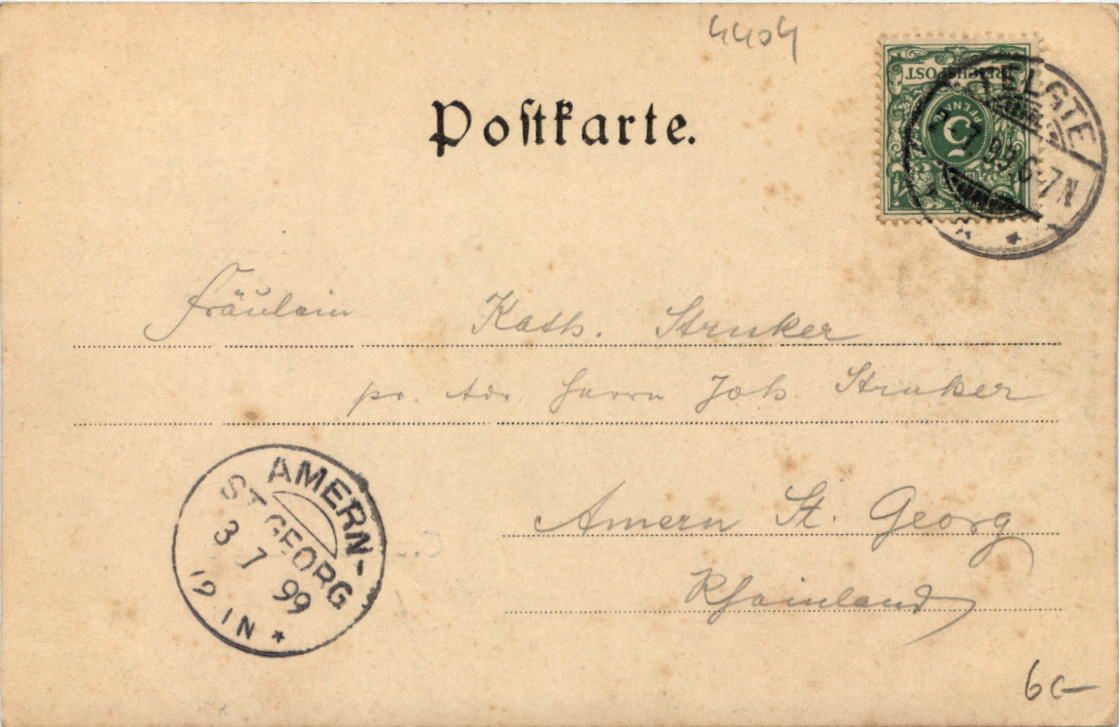 4404
Postkarte.
REICHSPOST
5
PFENNIG
TELGTE
2.7.99.6-7N
* *
Fräulein Kath. Struker
pr. Adr. Herrn Joh. Struker
AMERN-
ST. GEORG
3 7 99
12 1N *
Amern St. Georg
Rheinland
6.-